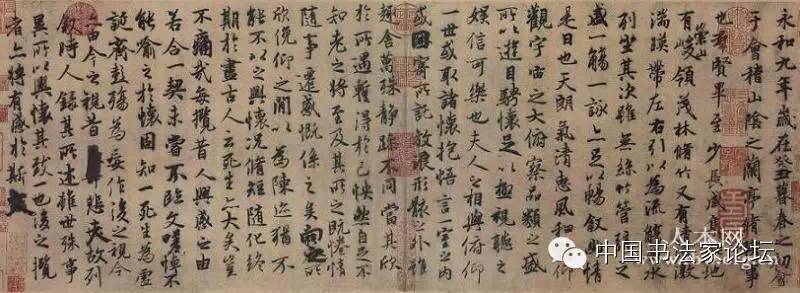 永和九年歲在癸丑暮春之初會
于會稽山陰之蘭亭脩稧事
也羣賢畢至少長咸集此地
有崇山峻領茂林脩竹又有清流激
湍暎帶左右引以為流觴曲水
列坐其次雖無絲竹管弦之
盛一觴一詠亦足以暢敘幽情
是日也天朗氣清惠風和暢仰
觀宇宙之大俯察品類之盛
所以遊目騁懷足以極視聽之
娛信可樂也夫人之相與俯仰
一世或取諸懷抱悟言一室之內
或因寄所託放浪形骸之外雖
趣舍萬殊靜躁不同當其欣
於所遇暫得於己怏然自足不
知老之將至及其所之既惓情
隨事遷感慨係之矣向之所
欣俛仰之閒以為陳迹猶不
能不以之興懷況脩短隨化終
期於盡古人云死生亦大矣豈
不痛哉每攬昔人興感之由
若合一契未嘗不臨文嗟悼不
能喻之於懷固知一死生為虛
誕齊彭殤為妄作後之視今
亦由今之視昔悲夫故列
敘時人錄其所述雖世殊事
異所以興懷其致一也後之攬
者亦將有感於斯文
中国书法家论坛